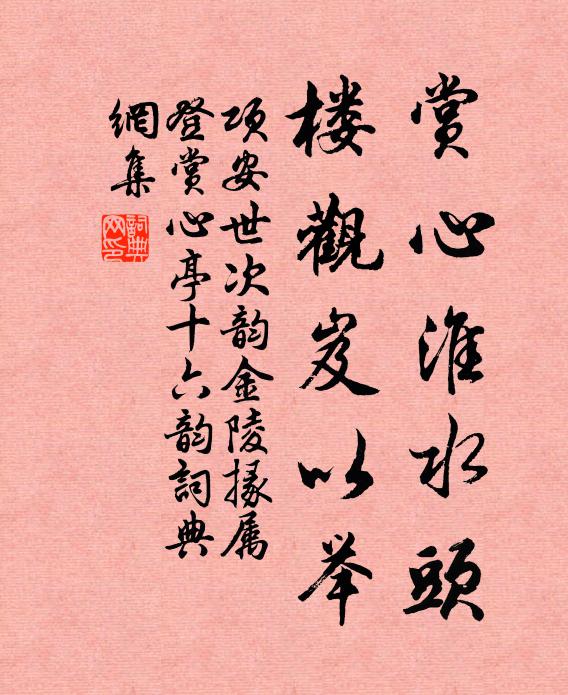 赏心淮水頭
楼觀岌以举
项安世次韵金陵掾属
登赏心亭十六韵詞典
網集
詞典
网印